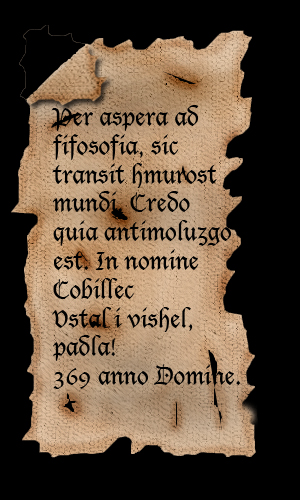 Per aspera ad
fifosofia, sic
transit hmurost
mundi. Credo
quia antimoluzgo
est. In nomine
Cobillec
Vstal i vishel,
padla!
369 anno Domine.